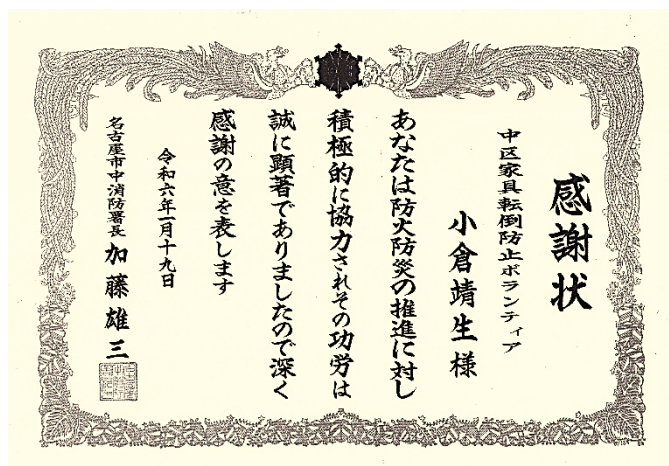 感謝状
中区家具転倒防止ボランティア
小倉靖生様
あなたは防火防災の推進に対し
積極的に協力されその功労は
誠に顕著でありましたので深く
感謝の意を表します
令和六年一月十九日
名古屋市中消防署長 加藤雄三